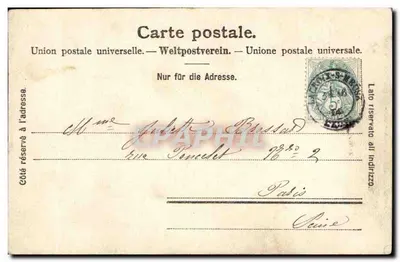 Carte postale.
Union postale universelle. — Weltpostverein. — Unione postale universale.
Nur für die Adresse.
Côté réservé à l'adresse.
Lato riservato all' indirizzo.
Mme Juliette
rue N:ro 2
Paris
Seine